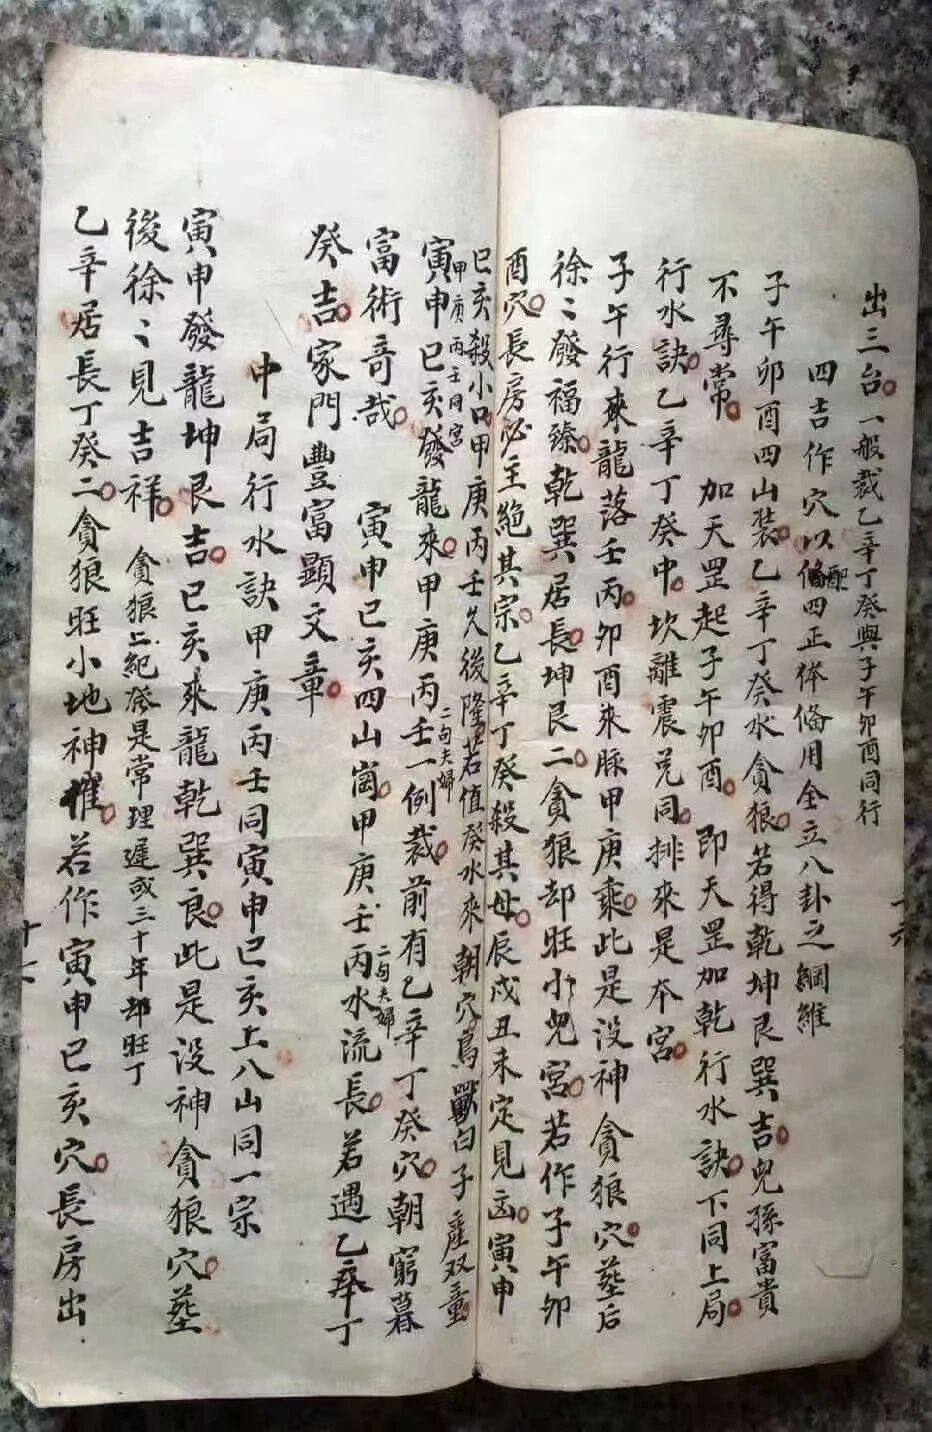 出三台一般裁乙辛丁癸與子午卯酉同行
四吉作穴以配四正体俻用全立八卦之綱維
子午卯酉四山裝乙辛丁癸水貪狼若得乾坤艮巽吉兒孫富貴
不尋常 加天罡起子午卯酉 即天罡加乾行水訣下同上局
行水訣乙辛丁癸中坎離震兌同排來是本宮
子午行來龍落壬丙卯酉來脉甲庚乘此是没神貪狼穴塟后
徐〻發福臻乾巽居長坤艮二貪狼却旺小兒宮若作子午卯
酉穴長房必主絕其宗乙辛丁癸殺其母辰戌丑未定見凶寅申
巳亥殺小口甲庚丙壬久後隆若值癸水來朝穴鳥獸白子産双童
甲庚丙壬同宮
寅申巳亥發龍來甲庚丙壬一例裁前有乙辛丁癸穴朝窮暮
二句夫婦
富術奇哉 寅申巳亥四山崗甲庚壬丙水流長若遇乙辛丁
二句夫婦
癸吉家門豐富顯文章
中局行水訣甲庚丙壬同寅申巳亥上八山同一宗
寅申發龍坤艮吉巳亥來龍乾巽良此是没神貪狼穴塟
後徐〻見吉祥 貪狼上紀發是常理遲或三十年却旺丁
乙辛居長丁癸二貪狼旺小地神推若作寅申巳亥穴長房出
十六
十七